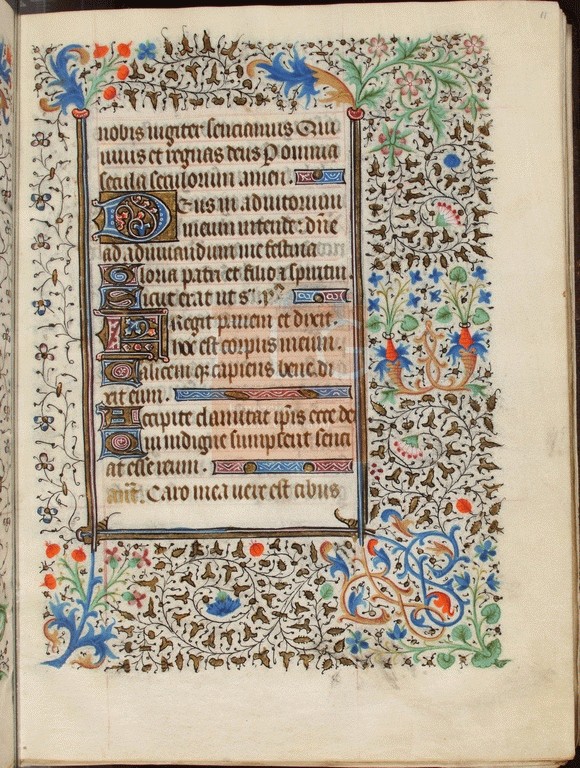 11
nobis iugiter sentiamus Qui
uiuis et regnas deus P omnia
secula seculorum. amen.
Deus in adiutorium
meum intende: dn̄e
ad adiuuandum me festina
Gloria patri et filio ⁊ spiritui
Sicut erat ut sͣ.
Fregit panem et dixit
hoc est corpus meum.
Calicem qꝫ capiens bene. di
xit eum.
Accipite claritat ip̄ius ecce de
Qui indigne sumpserit senti
at esse reum.
añt. Caro mea uere est cibus